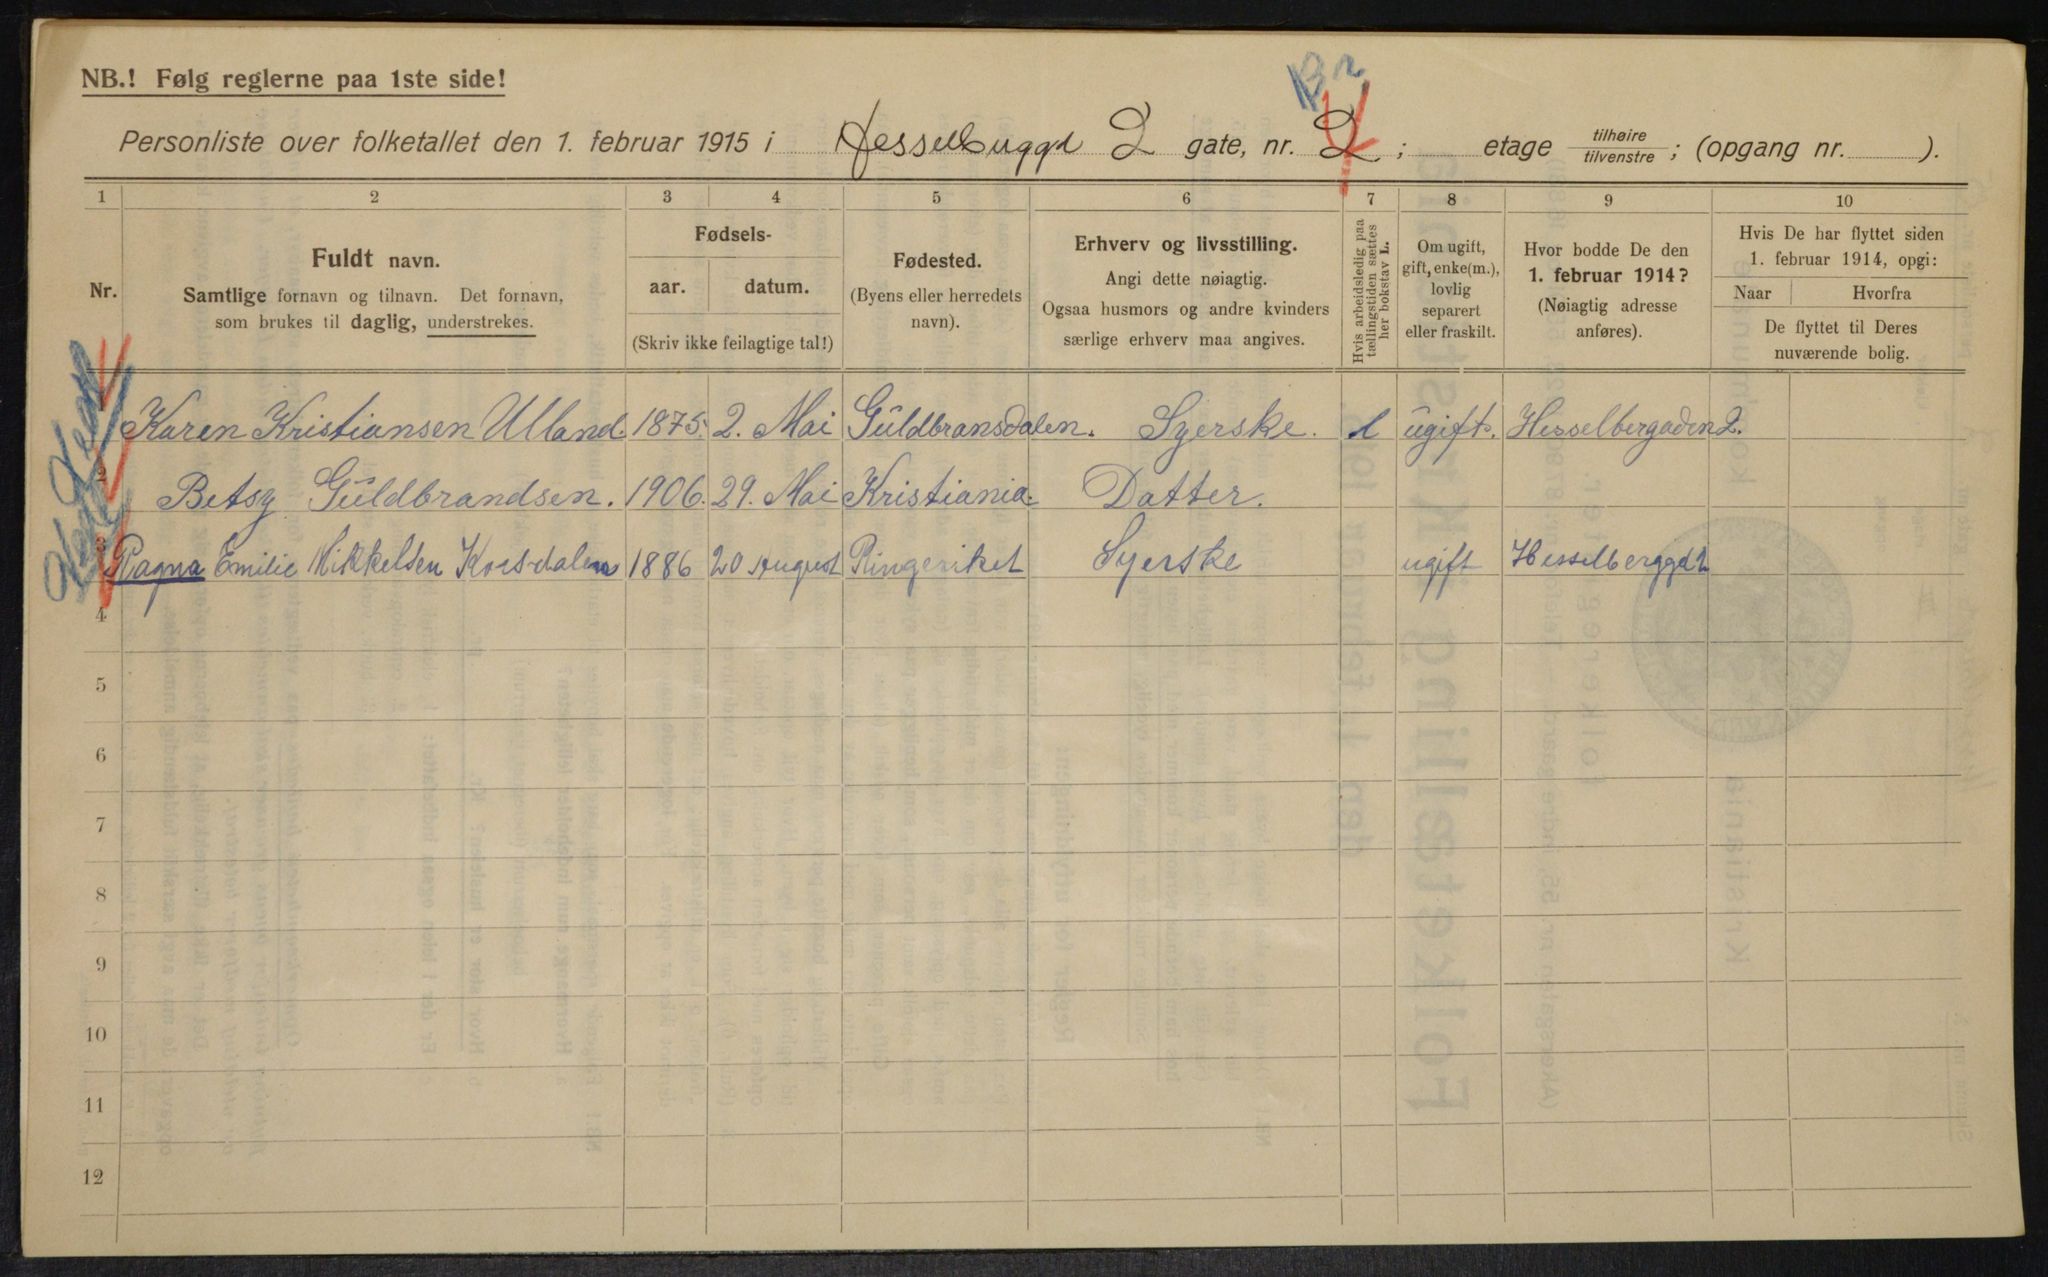 NB.! Følg reglerne paa 1ste side!
Personliste over folketallet den 1. februar 1915 i Hesselbuggd 2 gate, nr. 2 ; etage tilhøire / tilvenstre ; (opgang nr. ).
1 2 3 4 5 6 7 8 9 10
Nr.
Fuldt navn.
Samtlige fornavn og tilnavn. Det fornavn,
som brukes til daglig, understrekes.
Fødsels-
aar. datum.
(Skriv ikke feilagtige tal!)
Fødested.
(Byens eller herredets
navn).
Erhverv og livsstilling.
Angi dette nøiagtig.
Ogsaa husmors og andre kvinders
særlige erhverv maa angives.
Hvis arbeidsledig paa
tællingstiden sættes
her bokstav L.
Om ugift,
gift, enke(m.),
lovlig
separert
eller fraskilt.
Hvor bodde De den
1. februar 1914?
(Nøiagtig adresse
anføres).
Hvis De har flyttet siden
1. februar 1914, opgi:
Naar Hvorfra
De flyttet til Deres
nuværende bolig.
Karen Kristiansen Ulland 1875. 2. Mai Güldbransdalen. Syerske. l ugift. Hesselbergaden 2.
2 Betsy Güldbrandsen. 1906. 29. Mai Kristiania. Datter.
3 Ragna Emilie Mikkelsen Korsdalen 1886 20 August Ringeriket Syerske ugift Hesselberggd 2
4
5
6
7
8
9
10
11
12